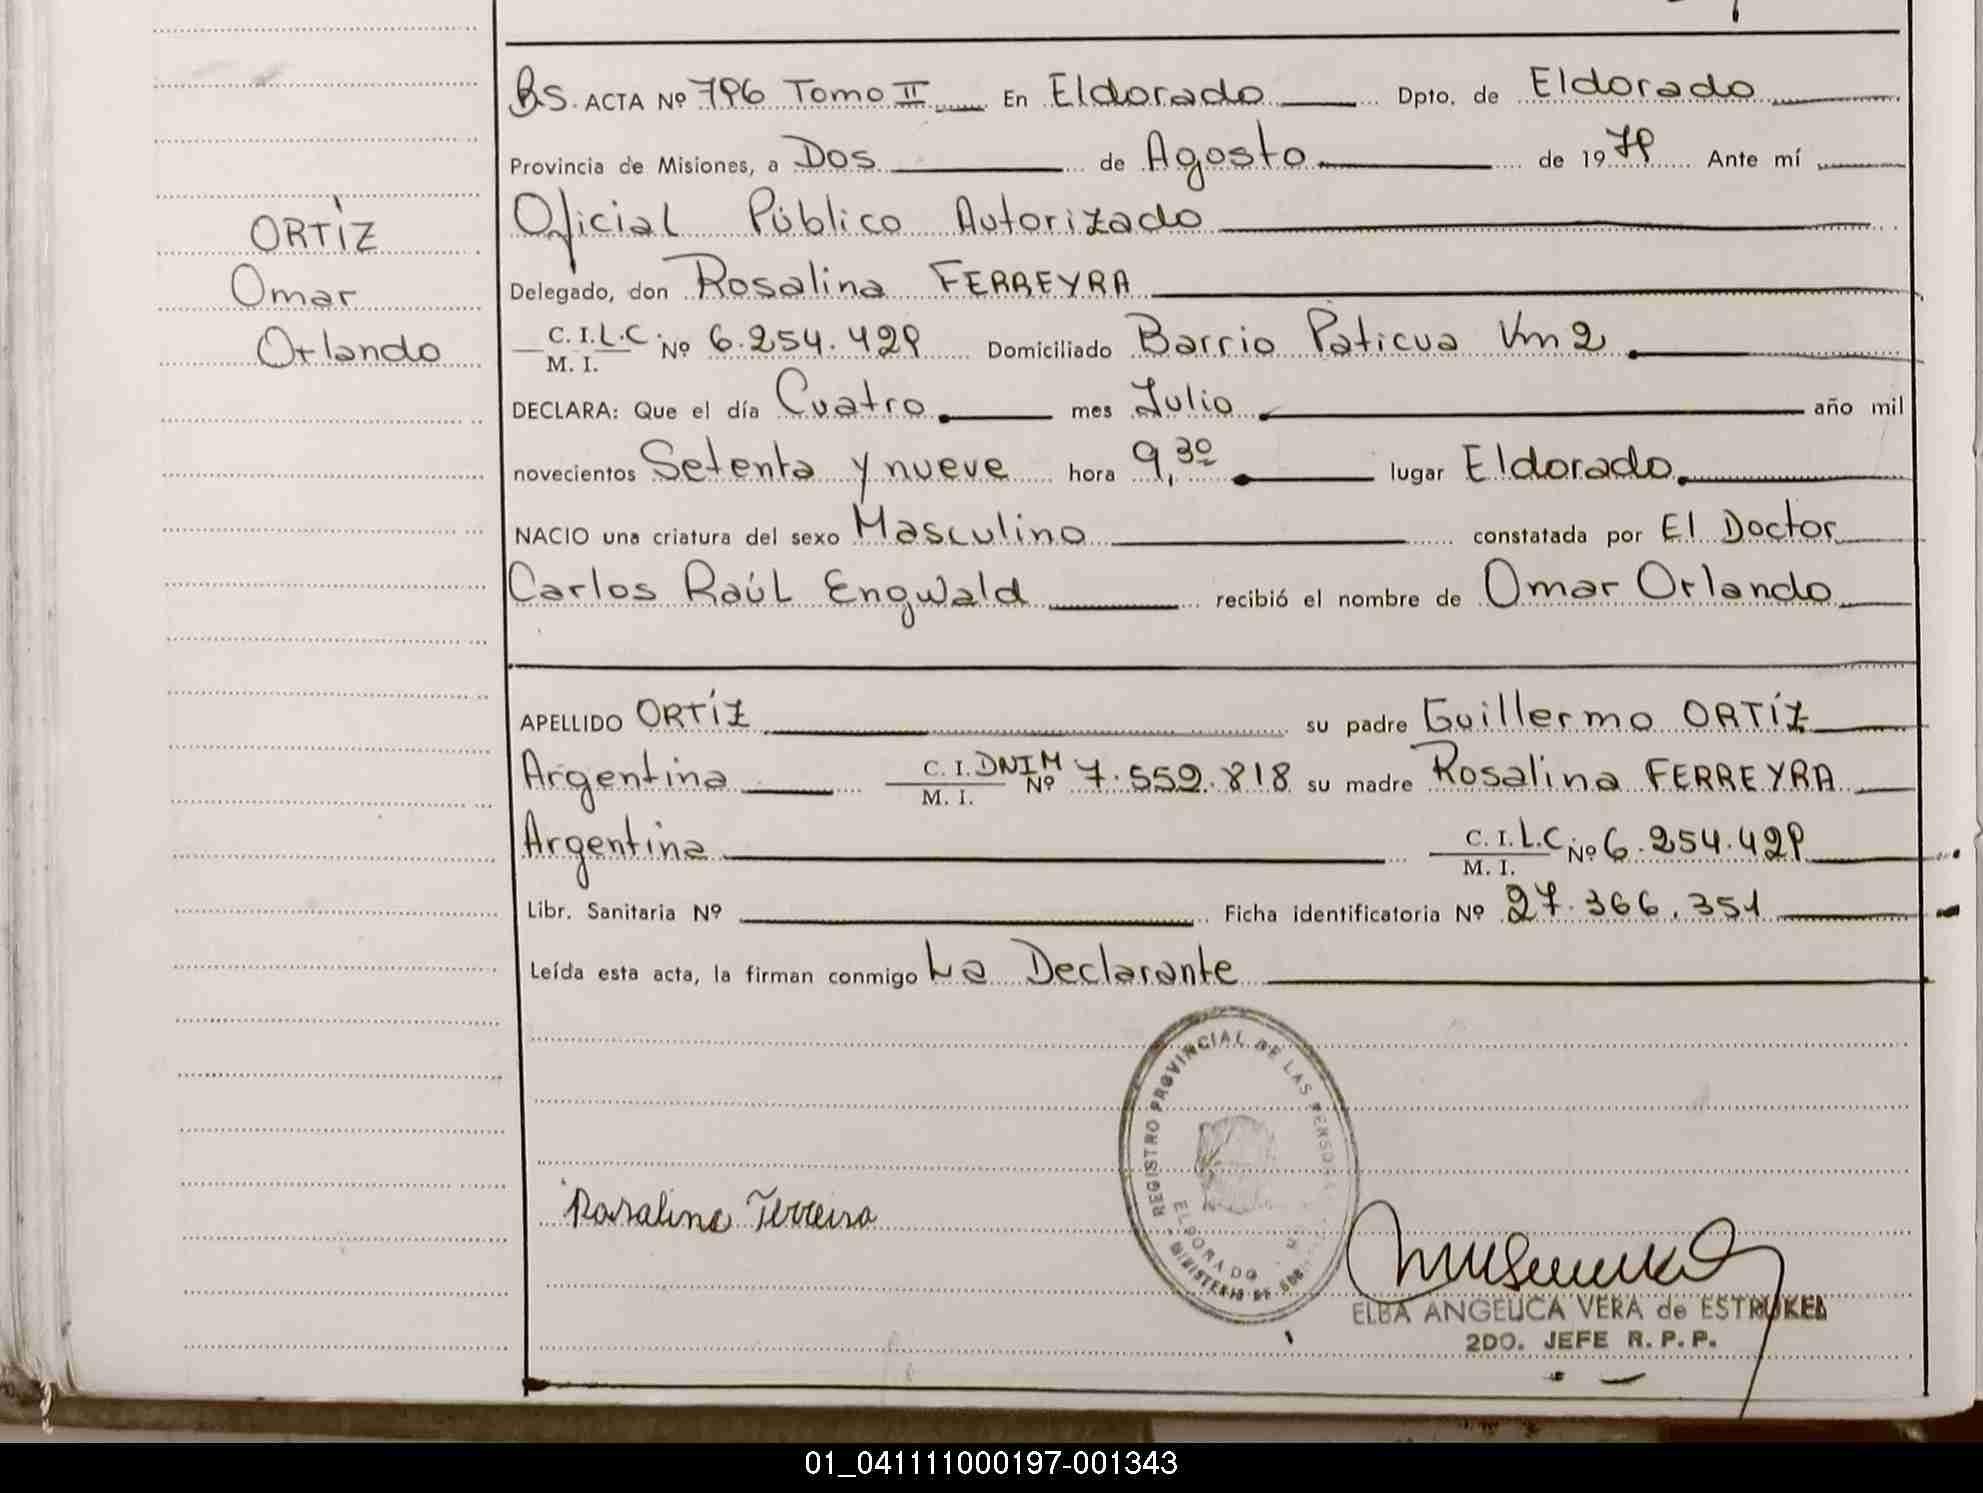 ORTÍZ
Omar
Orlando
BS. ACTA Nº 796 Tomo II En Eldorado Dpto. de Eldorado
Provincia de Misiones, a Dos de Agosto de 1979 Ante mí
Oficial Público Autorizado
Delegado, don Rosalina FERREYRA
C.I.L.C. M.I. Nº 6.254.429 Domiciliado Barrio Paticua Km 2
DECLARA: Que el día Cuatro mes Julio año mil
novecientos Setenta y nueve hora 9,30 lugar Eldorado
NACIO una criatura del sexo Masculino constatada por El Doctor
Carlos Raúl Engwald recibió el nombre de Omar Orlando
APELLIDO ORTÍZ su padre Guillermo ORTÍZ
Argentina C.I. DNIM M.I. Nº 7.559.818 su madre Rosalina FERREYRA
Argentina C.I.L.C M.I. Nº 6.254.429
Libr. Sanitaria Nº Ficha identificatoria Nº 27.366.351
Leída esta acta, la firman conmigo La Declarante
REGISTRO PROVINCIAL DE LAS PERSONAS
ELDORADO
MINISTERIO DE GOB
Rosalina Ferreira
ELBA ANGELICA VERA de ESTRUKEL
2DO. JEFE R. P. P.
01_041111000197-001343